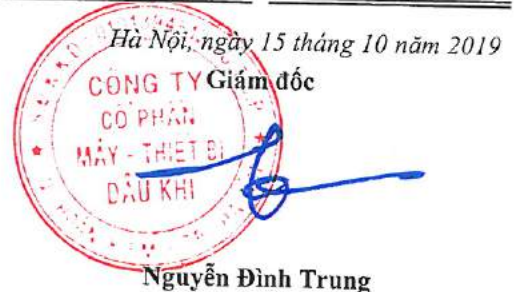 Hà Nội, ngày 15 tháng 10 năm 2019
Giám đốc
CÔNG TY
CỔ PHẦN
MÁY - THIẾT BỊ
DẦU KHÍ
Nguyễn Đình Trung